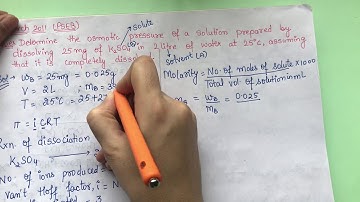 ch 2011 (PSEB)
solute
Determine the osmotic pressure of a solution prepared by
dissolving 25mg of K₂SO₄ in 2 litre of water at 25°C, assuming
that it is completely disso
solvent (A)
Sol W_B = 25mg = 0.025g
Molarity = No. of moles of solute × 1000
Total vol. of solution in mL
V = 2L
T = 25°C = 25+27
M_B = W_B = 0.025
M_B
π = iCRT
Rxn. of dissociation
K₂SO₄
No. of ions produced =
Van't Hoff factor, i = N
= 3